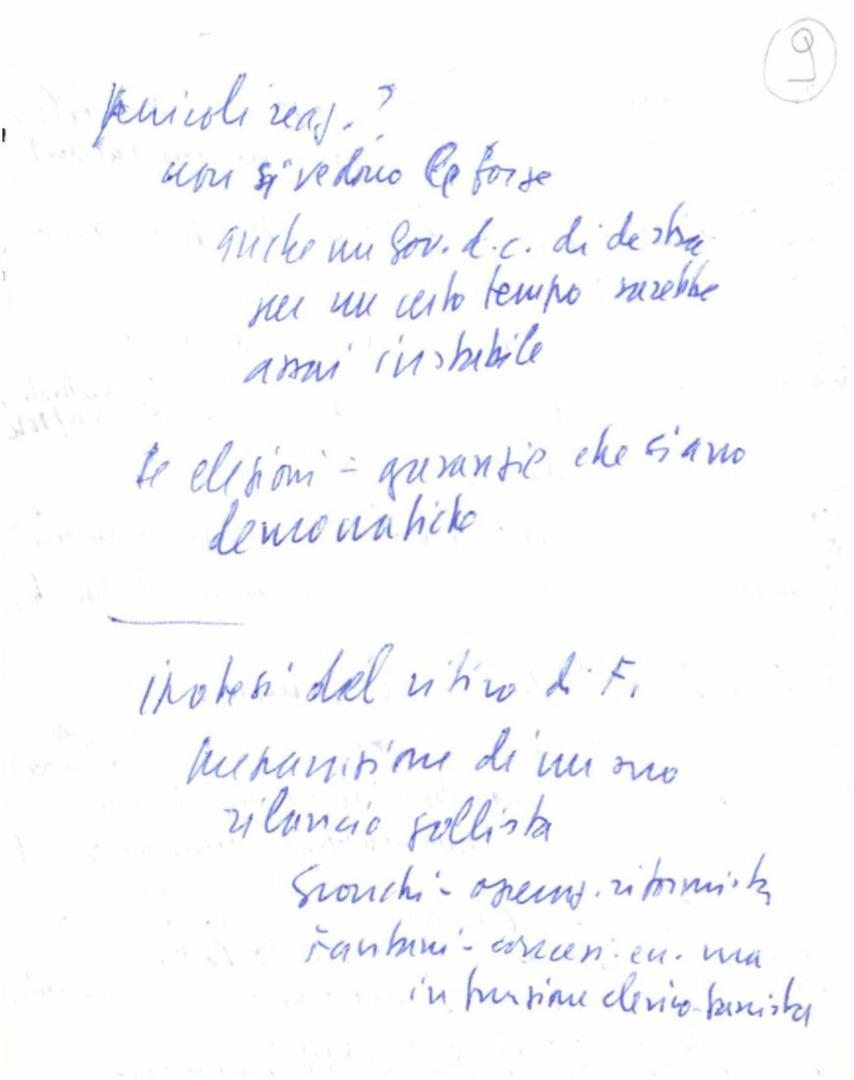 9
pericoli reaz.?
non si vedono le forze
anche un Gov. d.c. di destra
per un certo tempo sarebbe
assai instabile
Se elezioni = garanzie che siano
democratiche
ipotesi del ritiro di F.
preparazione di un suo
rilancio gollista
Gronchi - riformista
Fanfani - ma
in funzione clerico-fascista